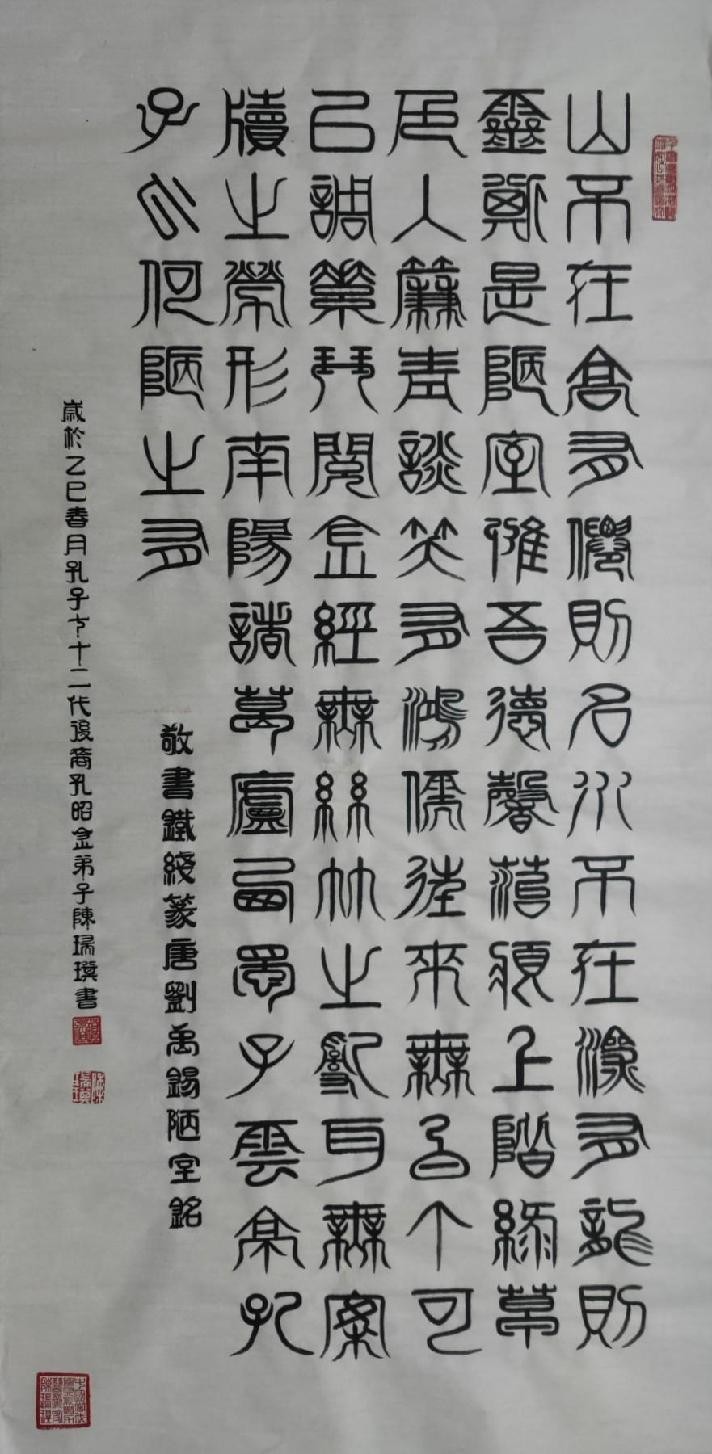 山不在高有僊則名水不在深有龍則
靈斯是陋室惟吾德馨苔痕上階綠草
色入簾青談笑有鴻儒往來無白丁可
以調素琴閱金經無絲竹之亂耳無案
牘之勞形南陽諸葛廬西蜀子雲亭孔
子云何陋之有
敬書鐵綫篆唐劉禹錫陋室銘
歲於乙巳春月孔子七十二代後裔孔昭金弟子陳瑞書